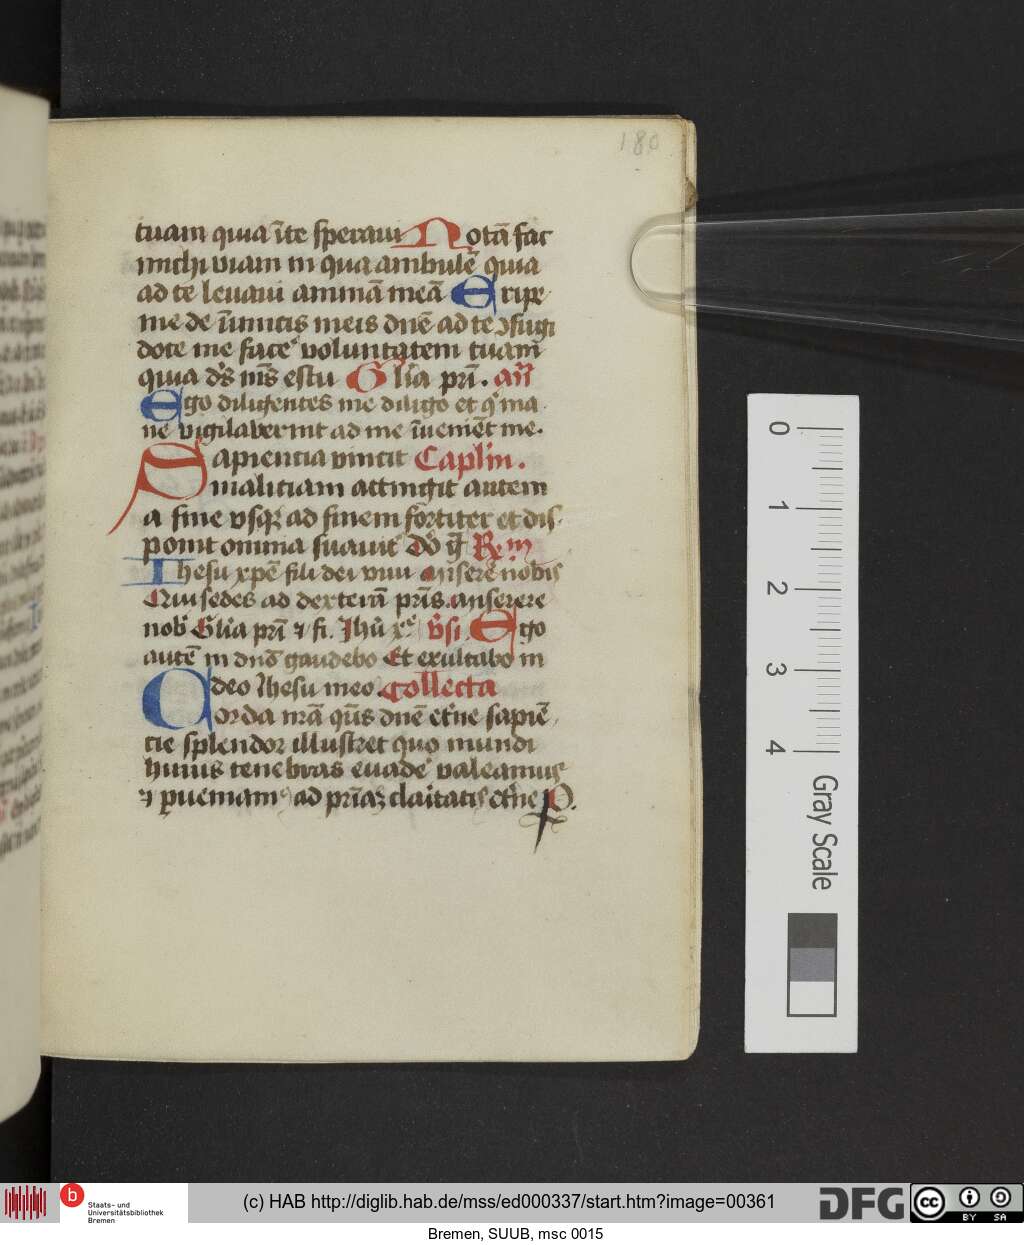 180
tuam quia ĩte speraui Notã fac
michi viam in qua ambulẽ quia
ad te leuaui animã meã Eripe
me de ĩimicis meis dnẽ ad te ↄfugi
doce me facẽ voluntatem tuam
quia ds ms es tu Glia pri. añ
Ego diligentes me diligo et q ma
ne vigilauerint ad me ĩueniẽt me.
Sapientia vincit Caplm.
malitiam attingit autem
a fine vsqꝫ ad finem fortiter et dis
ponit omnia suauit Do g Rem
Ihesu xpẽ fili dei viui miserẽ nobis
Qui sedes ad dexterã pris. miserere
nob Glia pri ⁊ fi. Ihũ xᵉ vsi. Ego
autẽ in dnõ gaudebo Et exultabo in
deo Ihesu meo. Collecta
Corda nrã qũs dnẽ etne sapiẽ
tie splendor illustret quo mundi
huius tenebras euadẽ valeamus
⁊ pueniamꝰ ad priaꝫ claitatis etne P.
0
1
2
3
4
Gray Scale
b Staats- und
Universitätsbibliothek
Bremen
(c) HAB http://diglib.hab.de/mss/ed000337/start.htm?image=00361
DFG
cc BY SA
Bremen, SUUB, msc 0015